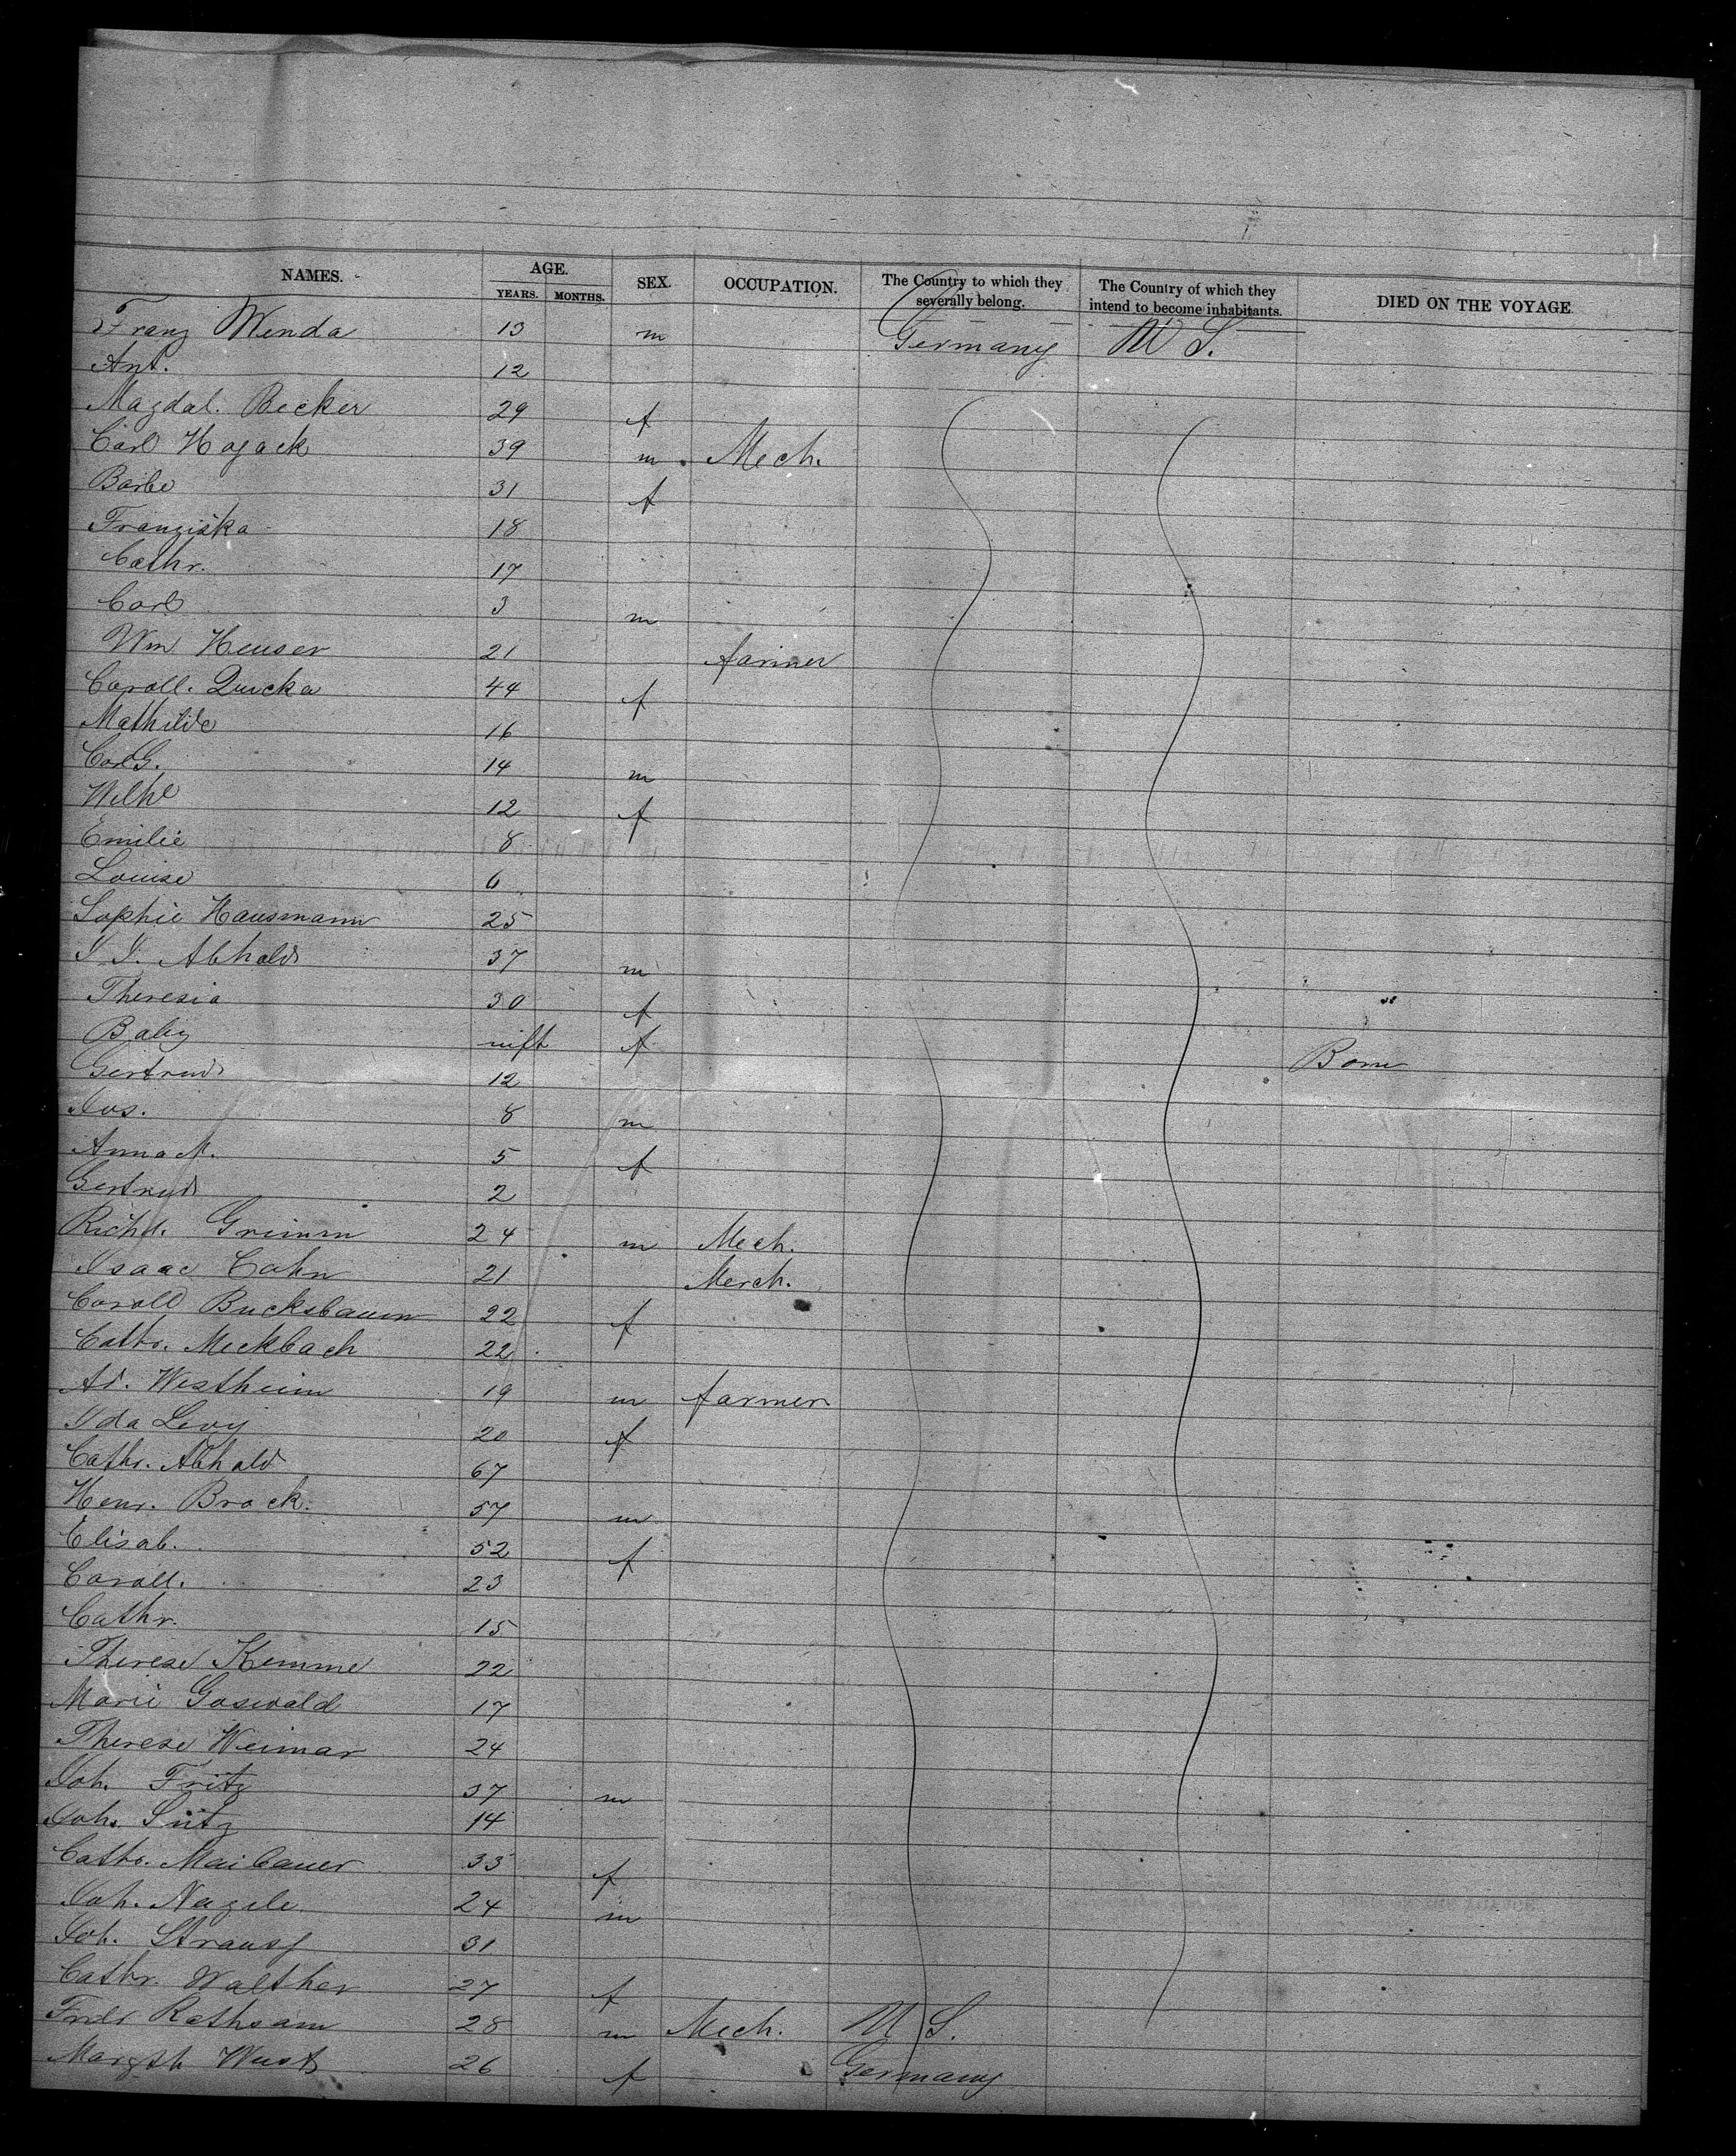 NAMES. AGE. SEX. OCCUPATION. The Country to which they severally belong. The Country of which they intend to become inhabitants. DIED ON THE VOYAGE
YEARS. MONTHS.
Franz Wenda 13 m Germany U S.
Ant. 12
Magdal. Becker 29 f
Carl Hojack 39 m Mech.
Barbe 31 f
Franziska 18
Cathr. 17
Carl 3 m
Wm Heuser 21 farmer
Caroll. Quicka 44 f
Mathilde 16
Carl G. 14 m
Wilhe 12 f
Emilie 8
Louise 6
Sophie Hausmann 25
J J. Abhald 37 m
Theresia 30 f
Baby f Born
Gertrud 12
Jos. 8 m
Anna M. 5 f
Gertrud 2
Richd. Grimm 24 m Mech.
Isaac Cahn 21 Merch.
Caroll Bucksbaum 22 f
Cathr. Meckbach 22
Ad. Westheim 19 m farmer
Ida Levy 20 f
Cathr. Abhald 67
Henr. Brack. 57 m
Elisab. 52 f
Caroll. 23
Cathr. 15
Therese Kemme 22
Marie Goswald 17
Therese Weimar 24
Joh. Fritz 37 m
Joh. 14
Cathr. Maibauer 33 f
Joh. Nagele 24 m
Joh. Strauss 31
Cathr. Walther 27 f
Fredr Rathsam 28 m Mech. U S.
Margth Wust 26 f Germany